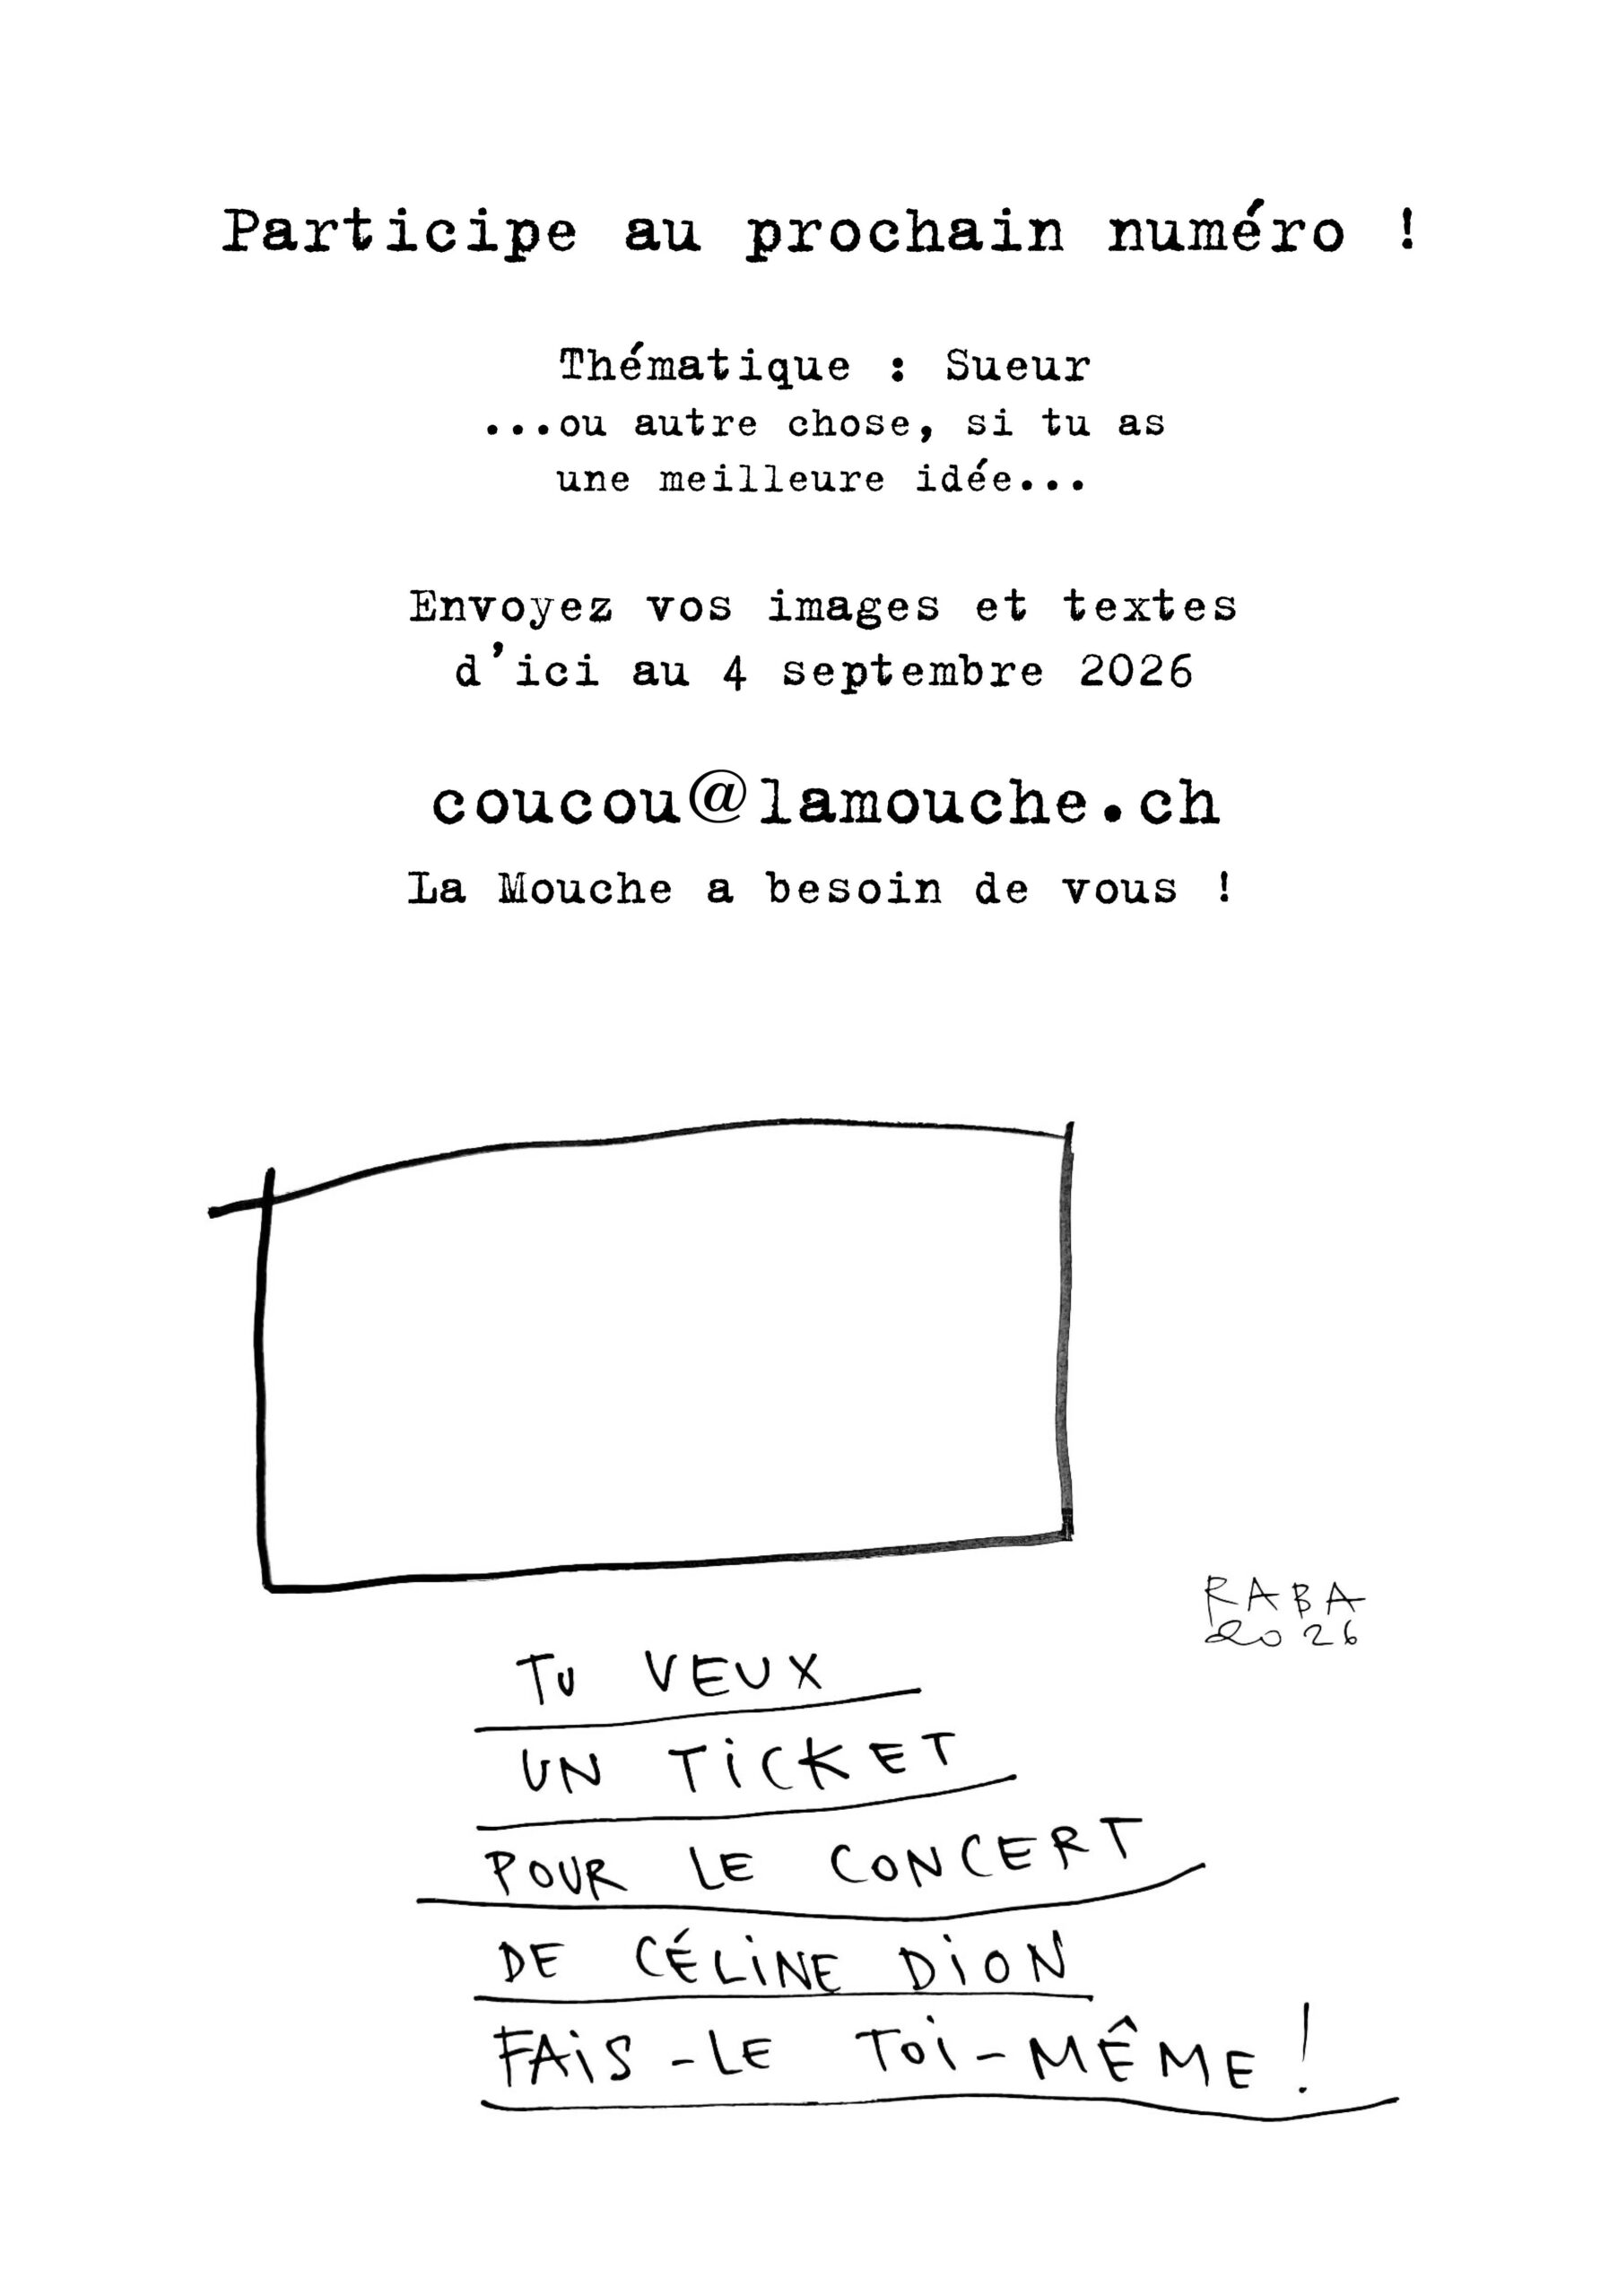 Participe au prochain numéro !
Thématique : Sueur
...ou autre chose, si tu as
une meilleure idée...
Envoyez vos images et textes
d'ici au 4 septembre 2026
coucou@lamouche.ch
La Mouche a besoin de vous !
RABA
2026
TU VEUX
UN TiCKET
POUR LE CONCERT
DE CÉLiNE DiON
FAiS-LE TOi-MÊME!